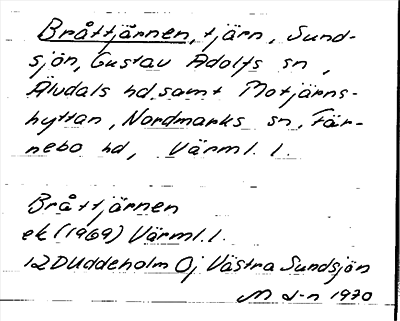 Bråttjärnen, tjärn, Sund-
sjön, Gustav Adolfs sn,
Älvdals hd samt Motjärns-
hyttan, Nordmarks sn, Fär-
nebo hd, Värml. l.
Bråttjärnen
ek (1969) Värml. l.
12D Uddeholm 0j Västra Sundsjön
1970